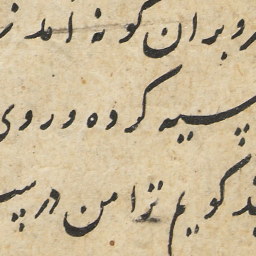 وبران کونه امد ز
سیه کرده و روی
ند کویم ترا من در پیـ